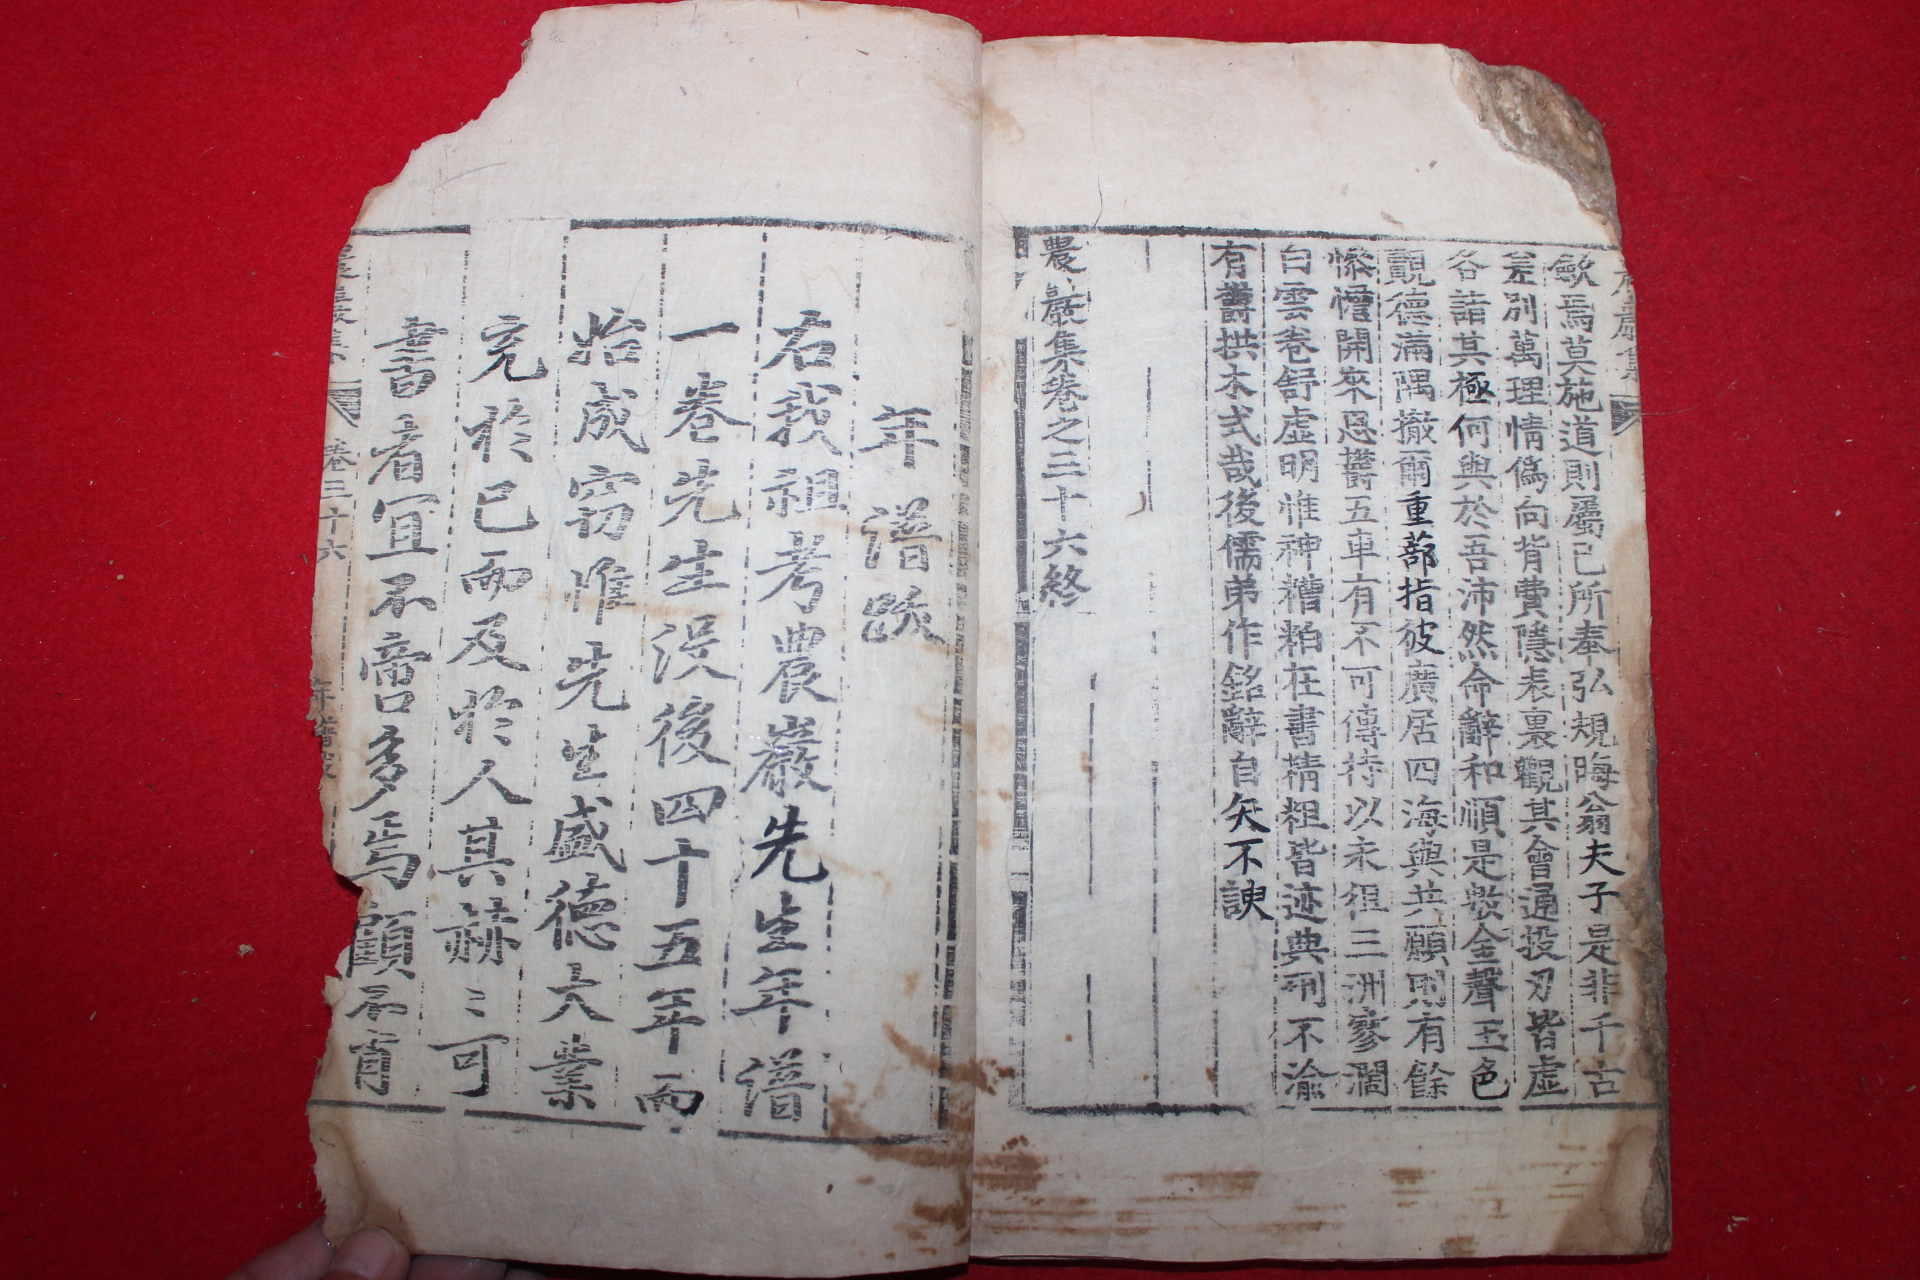 斂焉莫施道則屬已所奉弘規晦翁夫子是非千古
差別萬理情僞向背費隱表裏觀其會通投刃皆虛
各詣其極何與於吾沛然命辭和順是敷金聲玉色
覿德滿隅撤爾重蔀指彼廣居四海與共願則有餘
慘憺開來恩鬱五車有不可傳待以未徂三洲寥濶
白雲卷舒虛明惟神糟粕在書精粗皆迹典刑不渝
有鬱拱木式哉後儒弟作銘辭自矢不諛
農巖集卷之三十六終
年譜跋
右我祖考農巖先生年譜
一卷先生沒後四十五年而
始成竊惟先生盛德大業
充於己而及於人其赫〻可
書者宜不啻多焉顧不肖
卷三十六
年譜跋